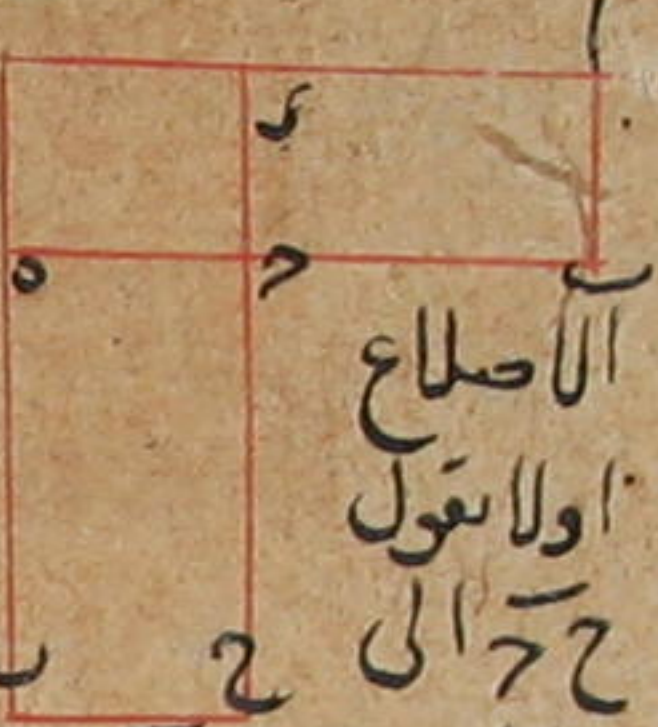 د
ه ح ب
الاضلاع
اولا نقول
ح ح الى
ح ر